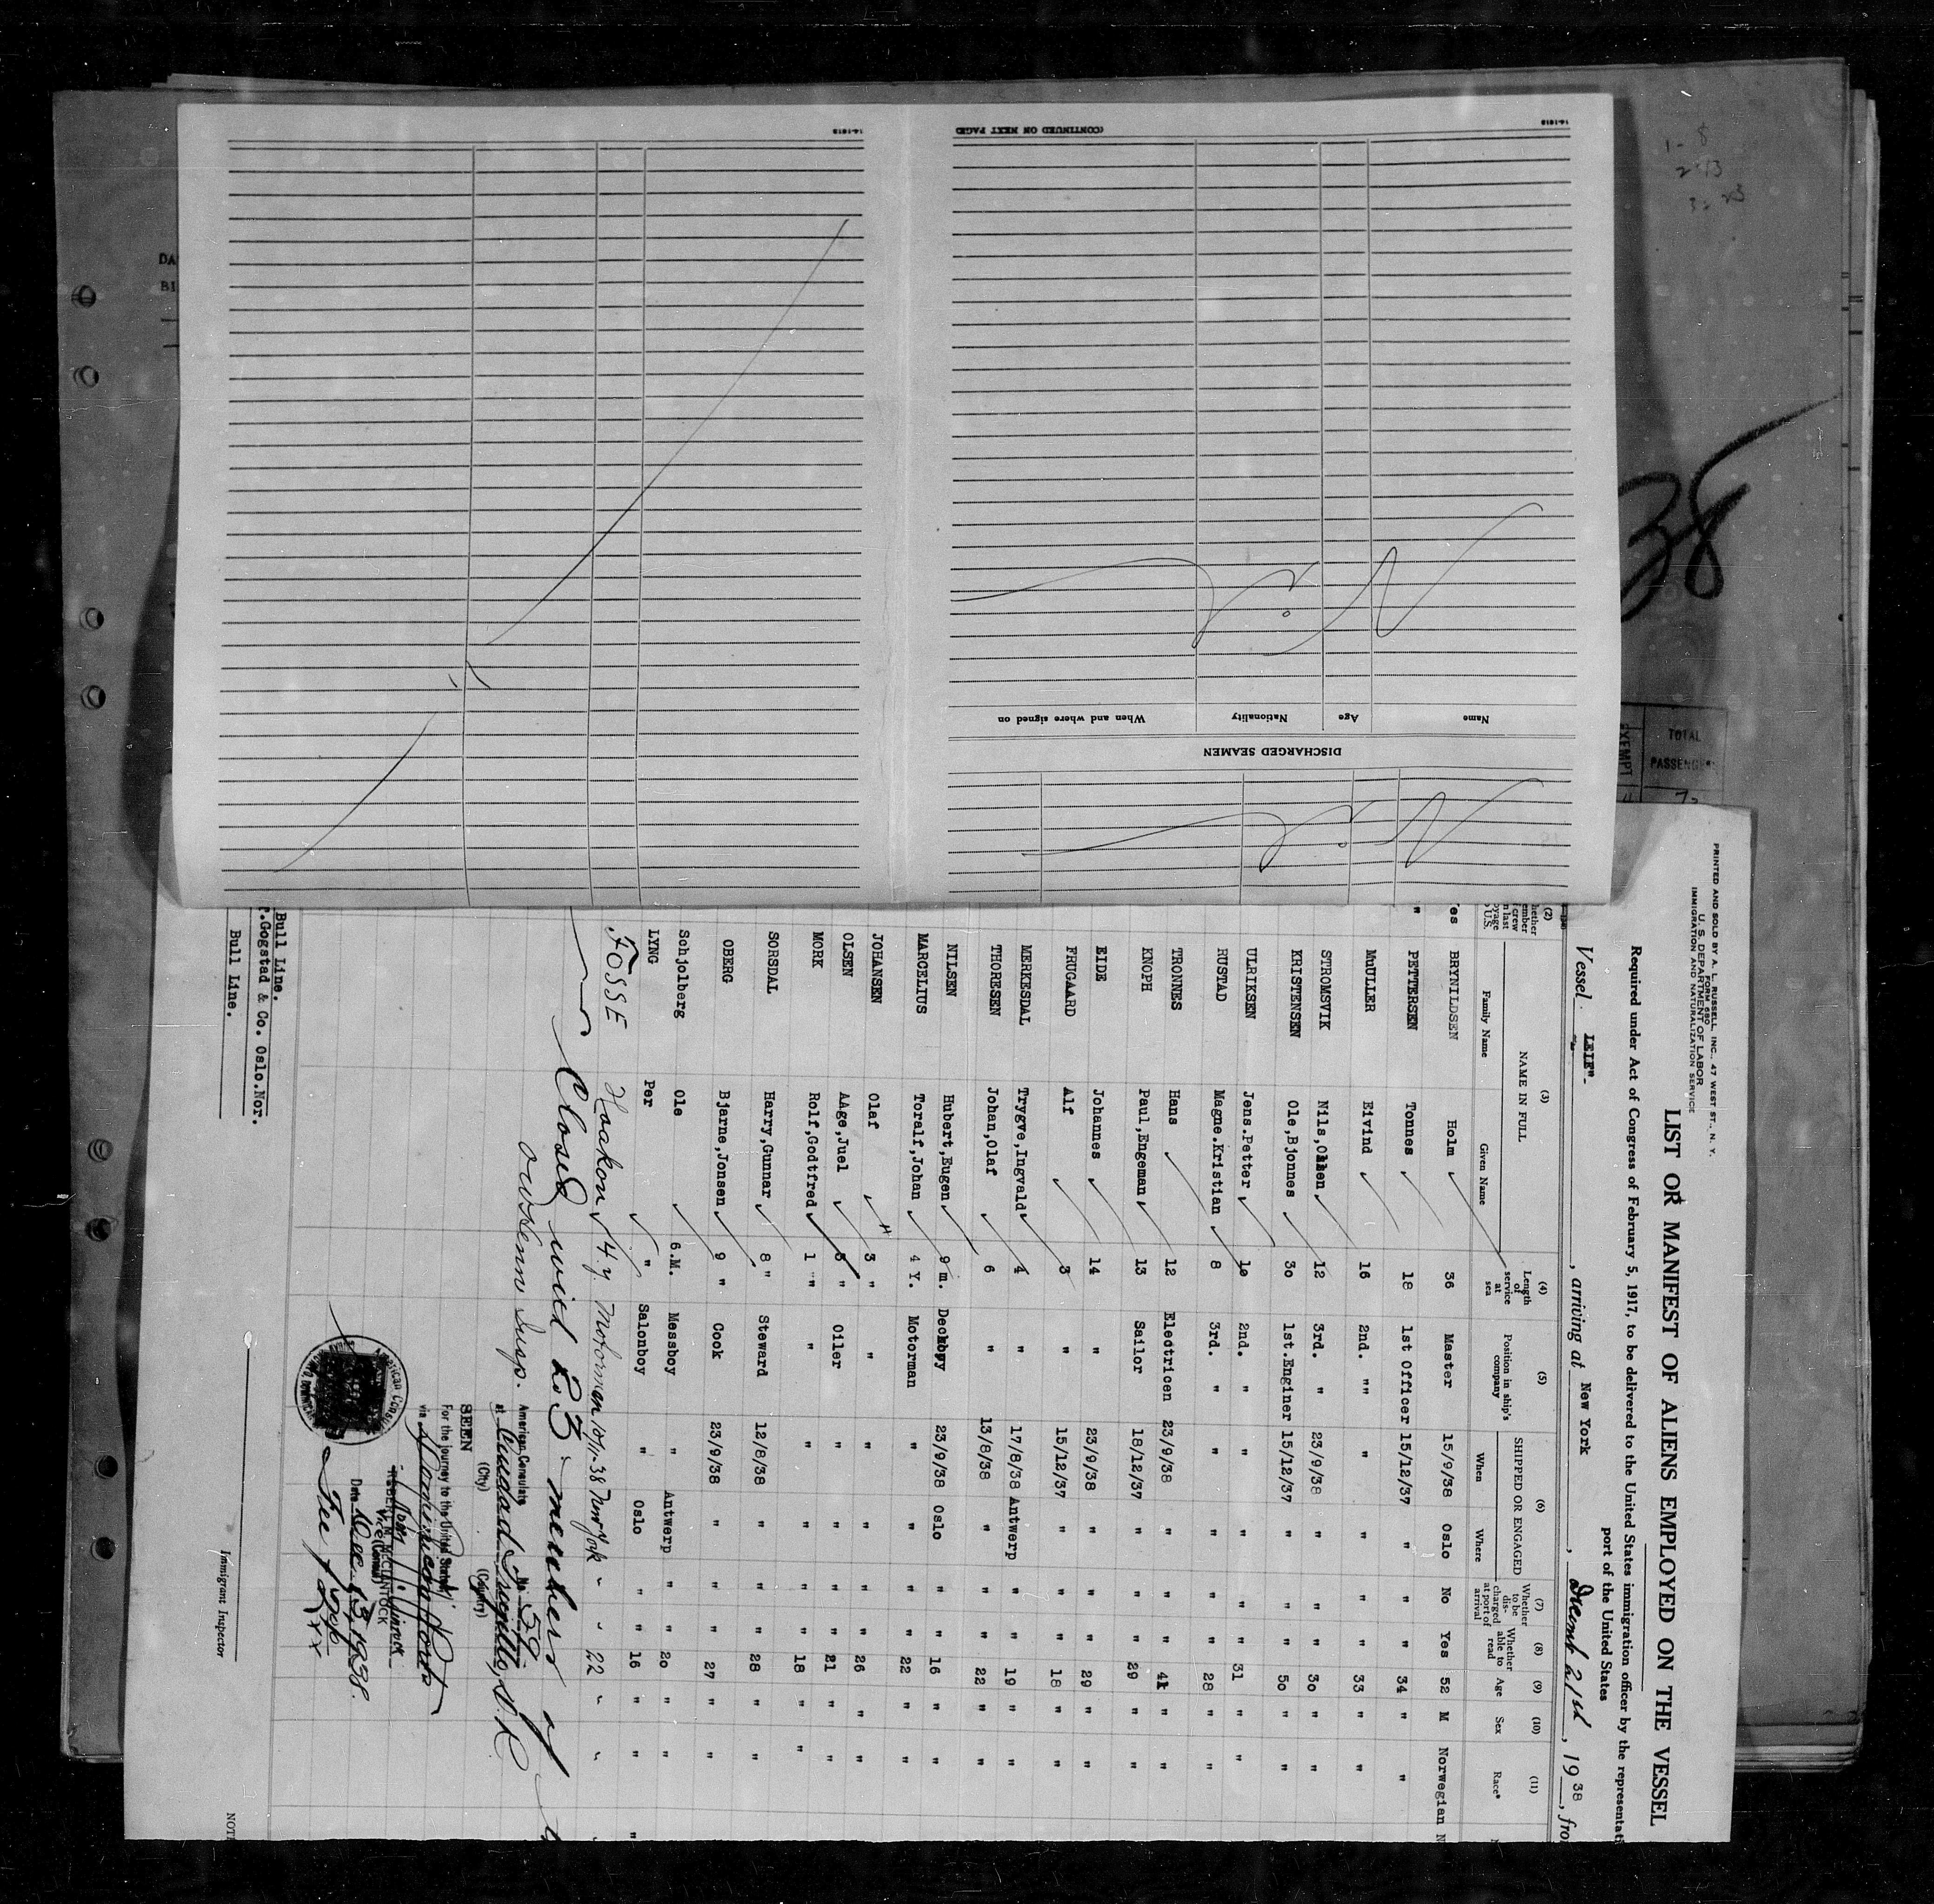 PRINTED AND SOLD BY A. L. RUSSELL, INC., 47 WEST ST., N. Y.
FORM 680
U. S. DEPARTMENT OF LABOR
IMMIGRATION AND NATURALIZATION SERVICE
LIST OR MANIFEST OF ALIENS EMPLOYED ON THE VESSEL
Required under Act of Congress of February 5, 1917, to be delivered to the United States immigration officer by the representati
port of the United States
Vessel LEIF"- , arriving at New York , 21st , 19 38 , fro
(2) (3) (4) (5) (6) (7) (8) (9) (10) (11)
NAME IN FULL
Family Name Given Name
Length of service at sea
Position in ship's company
SHIPPED OR ENGAGED
When Where
Whether to be discharged at port of arrival
Whether able to read
Age
Sex
Race*
es BRYNILDSEN Holm 36 Master 15/9/38 Oslo No Yes 52 M Norwegian N
" PETTERSEN Tonnes 18 1st Officer 15/12/37 " " " 34 " "
MuULLER Eivind 16 2nd. "" " " " " 33 " "
STROMSVIK Nils, 12 3rd. " 23/9/38 " " " 30 " "
KRISTENSEN Ole,Bjonnes 30 1st.Enginer 15/12/37 " " " 50 " "
ULRIKSEN Jens.Petter 10 2nd. " " " " " 31 " "
RUSTAD Magne.Kristian 8 3rd. " " " " " 28 " "
TRONNES Hans 12 Electricen 23/9/38 " " " 41 " "
KNOPH Paul,Engeman 13 Sailor 18/12/37 " " " 29 " "
EIDE Johannes 14 " 23/9/38 " " " 29 " "
FRUGAARD Alf 3 " 15/12/37 " " " 18 " "
MERKESDAL Trygve,Ingvald 4 " 17/8/38 Antwerp " " 19 " "
THORESEN Johan,Olaf 6 " 13/8/38 " " " 22 " "
NILSEN Hubert,Eugen 9 m. Deckboy 23/9/38 Oslo " " 16 " "
MARCELIUS Toralf,Johan 4 Y. Motorman " " " " 22 " "
JOHANSEN Olaf 3 " " " " " " 26 " "
OLSEN AAge,Juel 5 " Oiler " " " " 21 " "
MORK Rolf,Godtfred 1 " " " " " " 18 " "
SORSDAL Harry,Gunnar 8 " Steward 12/8/38 " " " 28 " "
OBERG Bjarne,Jonsen 9 " Cook 23/9/38 " " " 27 " "
Schjolberg Ole 6.M. Messboy " Antwerp " " 20 " "
LYNG Per " Salonboy " Oslo " " 16 " " "
FOSSE Haakon 4 y. Motorman 10/11-38 New York " " 22 " "
Closed with 23 members of
American Consulate
No. 59
at Ciudad Trujillo, D.R
(City) (Country)
SEEN
For the journey to the United States
via Dominican Ports
ROBERT M. McCLINTOCK
Vice Consul
Date Dec. 13, 1938.
Bull Line.
.Gogstad & Co. Oslo.Nor.
Bull Line.
Immigrant Inspector
NOTE
16-1618
(CONTINUED ON NEXT PAGE)
16-1618
DISCHARGED SEAMEN
Name Age Nationality When and where signed on
38
1- 8
2- 13
3- 23
EXEMPT
TOTAL
PASSENGE
DA
BI